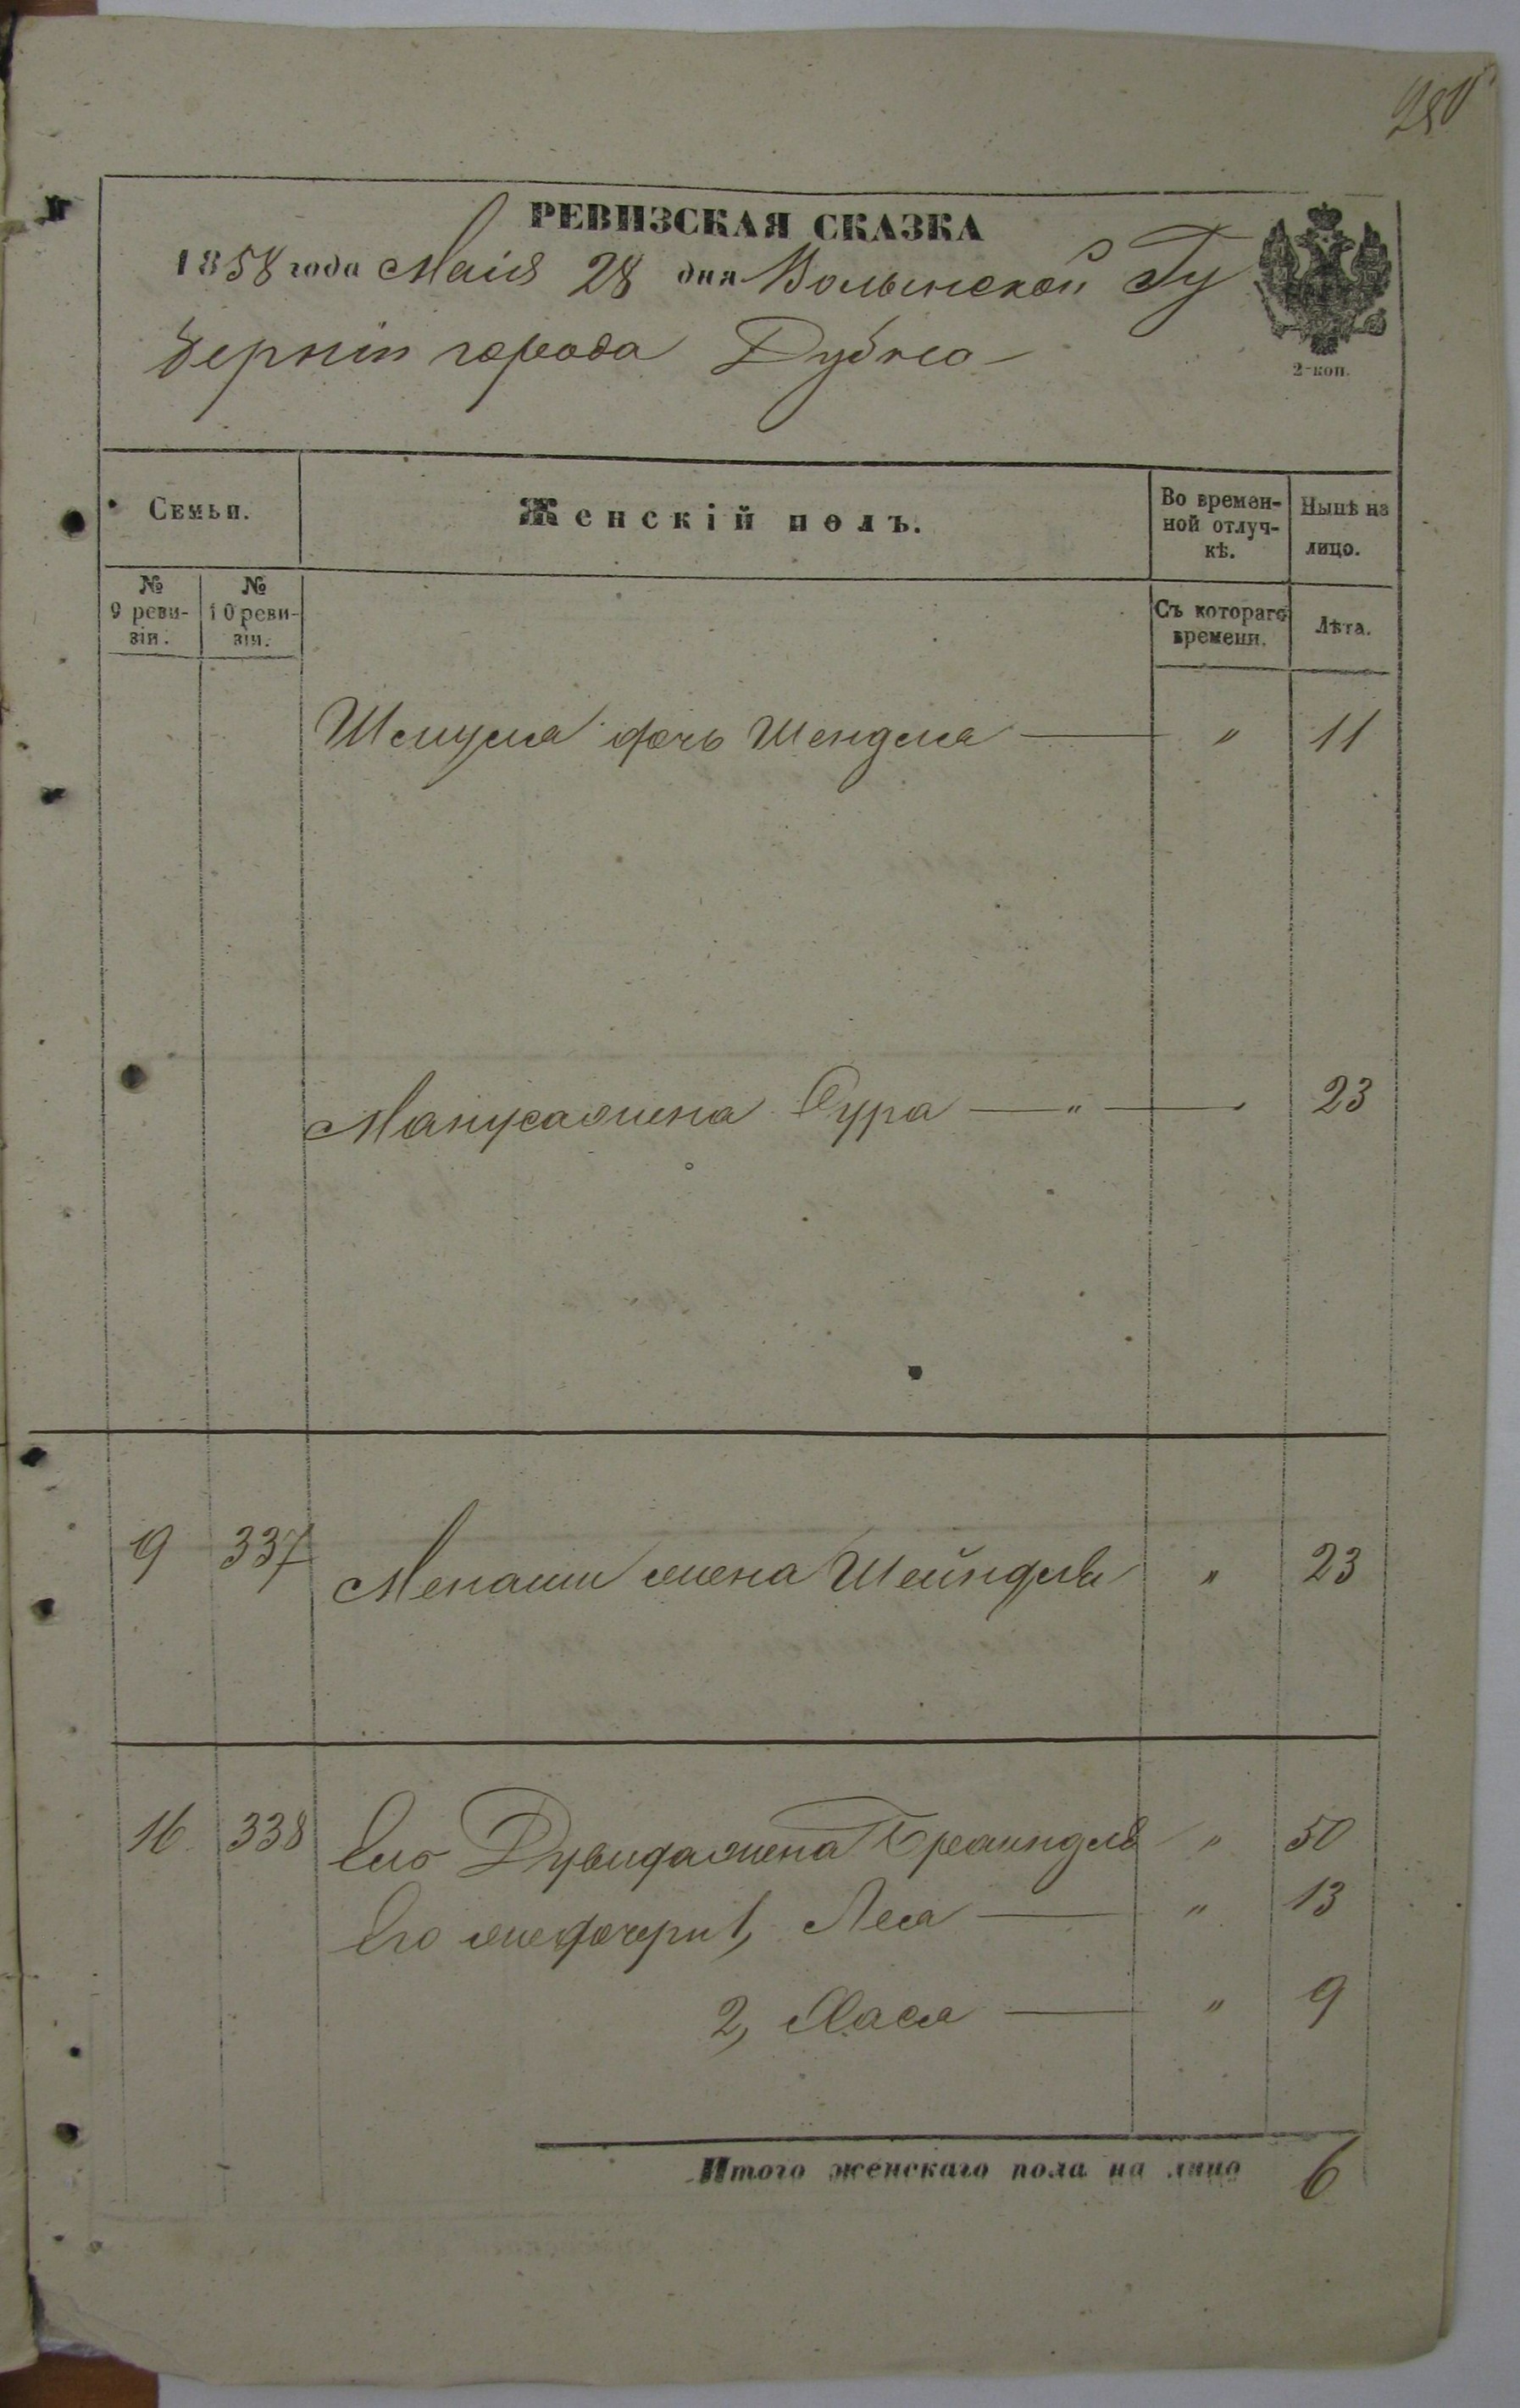 280
РЕВИЗСКАЯ СКАЗКА
1858 года Маія 28 дня Волынской Гу
берніи города Дубно
2-коп.
Семьи.
Женскій полъ.
Во времен-
ной отлуч-
кѣ.
Нынѣ на
лицо.
№
9 реви-
зіи.
№
10 реви-
зіи.
Съ котораго
времени.
Лѣта.
Шмуля дочь Шендля — " 11
Мануса жена Сура — " — 23
9 337 Менаши жена Шейндля " 23
16 338 Его Дувида жена Бреиндля " 50
Его же дочери 1, Лея — " 13
2, Хася — " 9
Итого женскаго пола на лицо 6